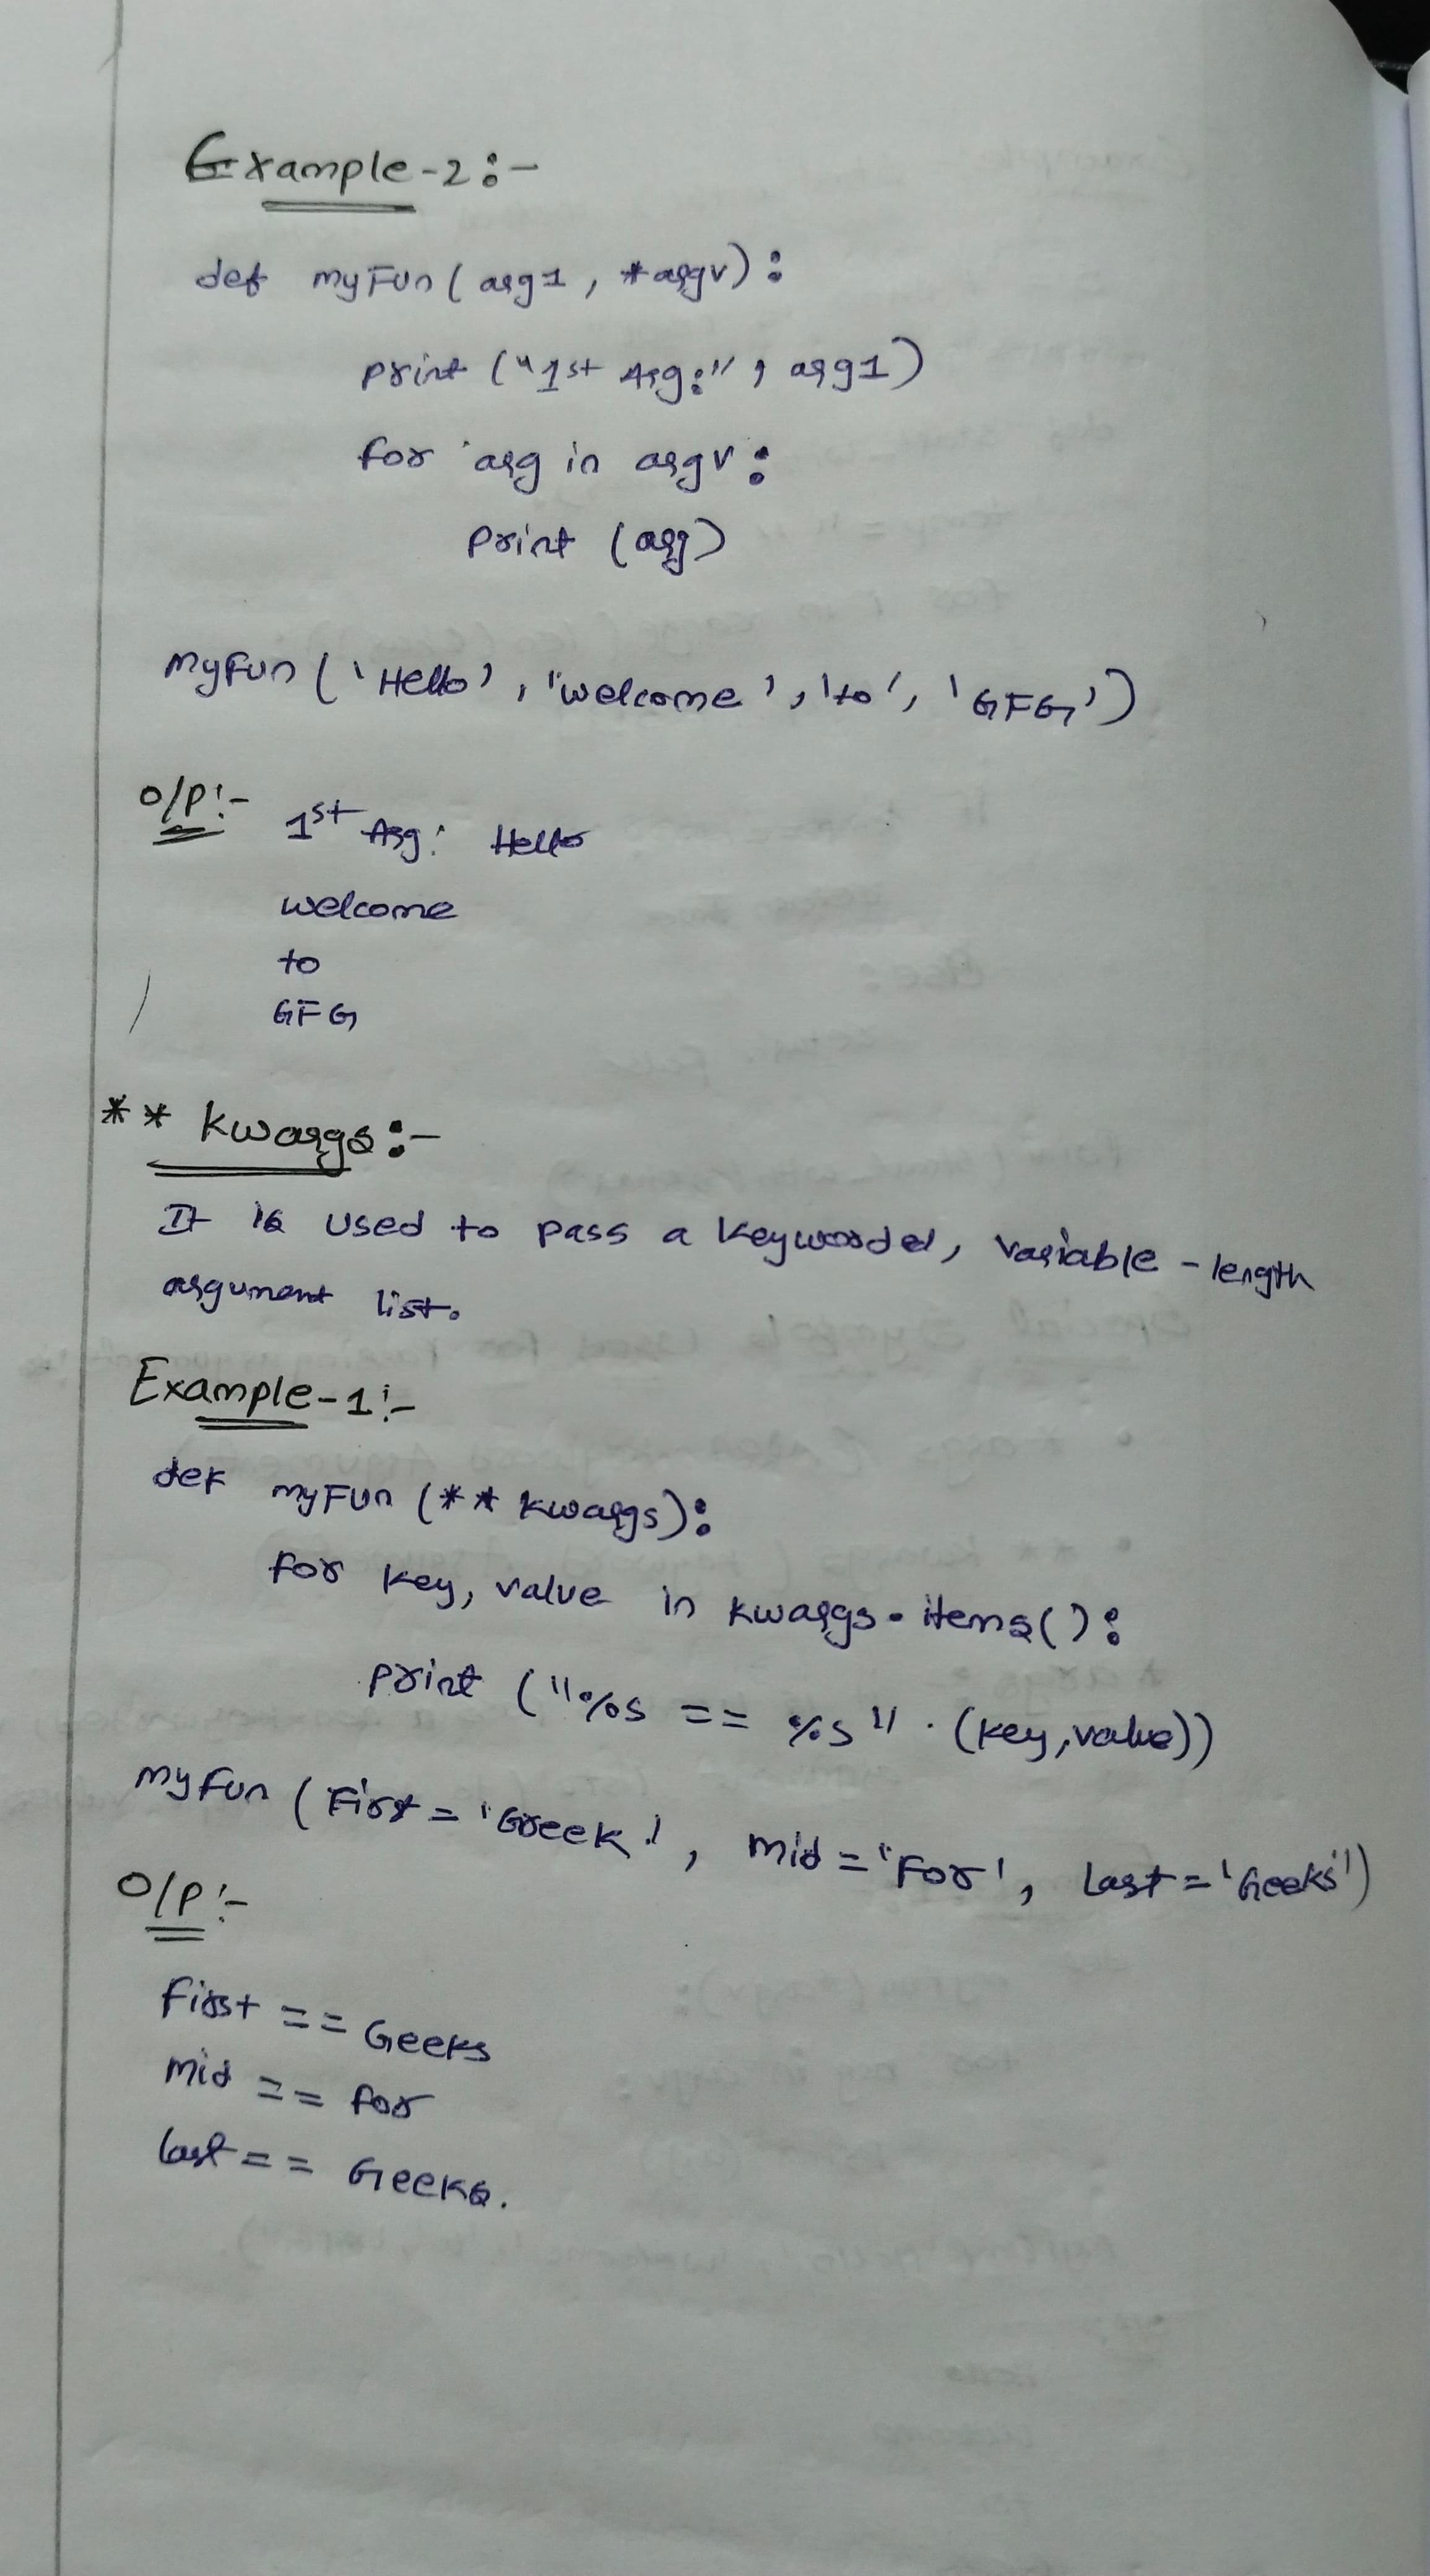 Example-2:-
def myFun(arg1, *argv):
print ("1st Arg:", arg1)
for arg in argv:
print (arg)
myFun('Hello', "welcome', 'to', 'GFG')
O/P:- 1st Arg: Hello
welcome
to
GFG
** kwargs:-
It is used to pass a keyworded, variable-length
argument list.
Example-1:-
def myFun (** kwargs):
for key, value in kwargs.items():
print ("%s == %s" . (key, value))
myFun (First = 'Greek', mid = 'For', Last = 'Geeks')
O/P:-
First == Geeks
mid == for
last == Geeks.